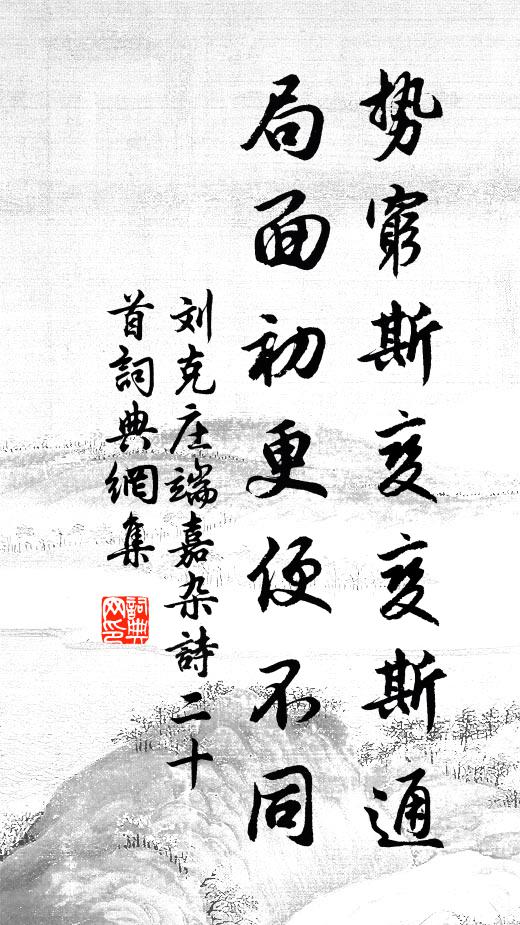 势穷斯变变斯通
局面初更便不同
刘克庄端嘉杂詩二十
首詞典網集
詞典网印